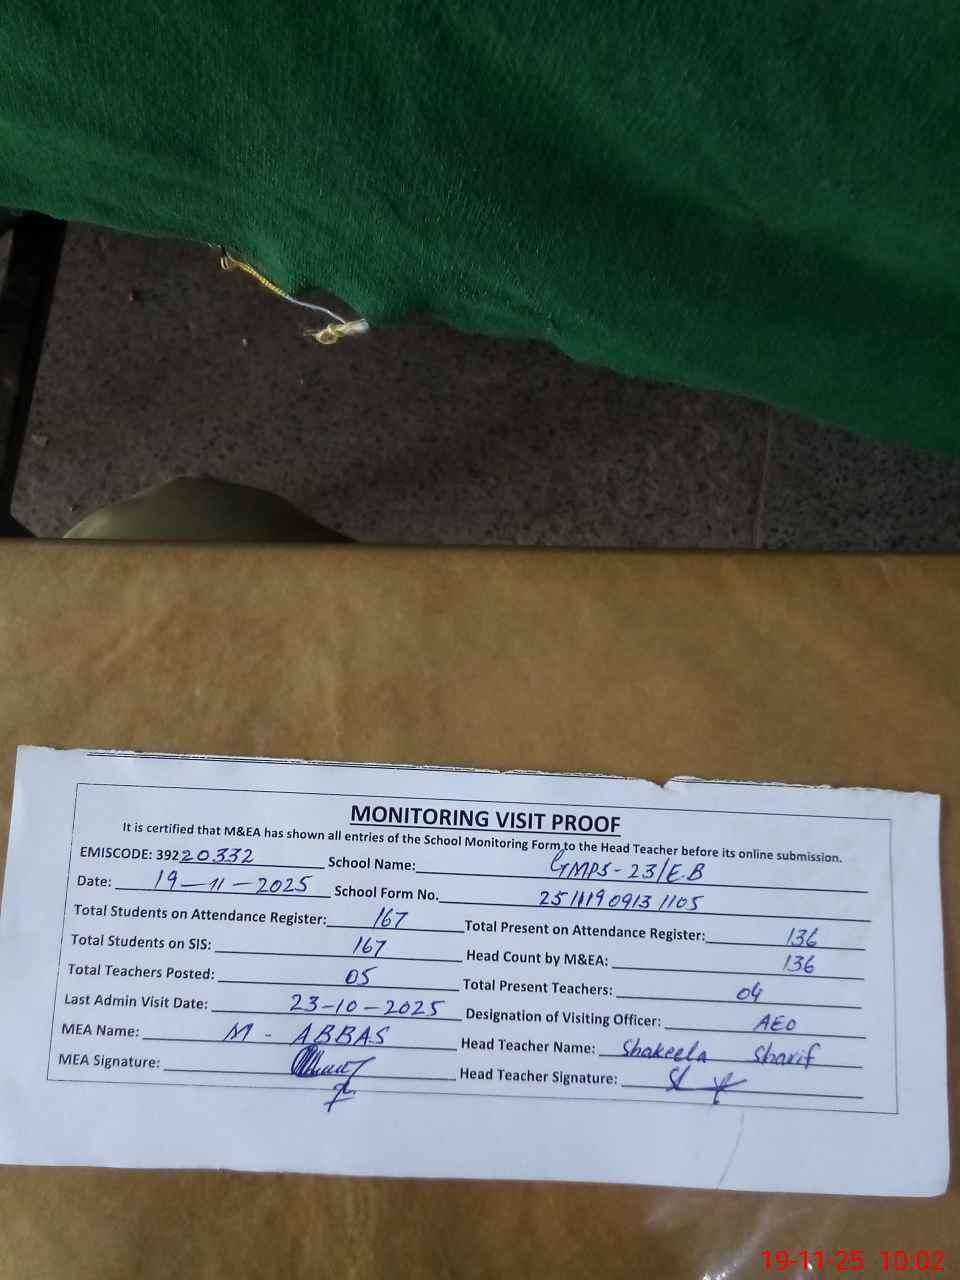 MONITORING VISIT PROOF
It is certified that M&EA has shown all entries of the School Monitoring Form to the Head Teacher before its online submission.
EMISCODE: 39220332 School Name: GMPS-23/E.B
Date: 19-11-2025 School Form No. 2511190913 1105
Total Students on Attendance Register: 167 Total Present on Attendance Register: 136
Total Students on SIS: 167 Head Count by M&EA: 136
Total Teachers Posted: 05 Total Present Teachers: 04
Last Admin Visit Date: 23-10-2025 Designation of Visiting Officer: AEO
MEA Name: M - ABBAS Head Teacher Name: Shakeela Sharif
MEA Signature: Head Teacher Signature:
19-11-25 10:02